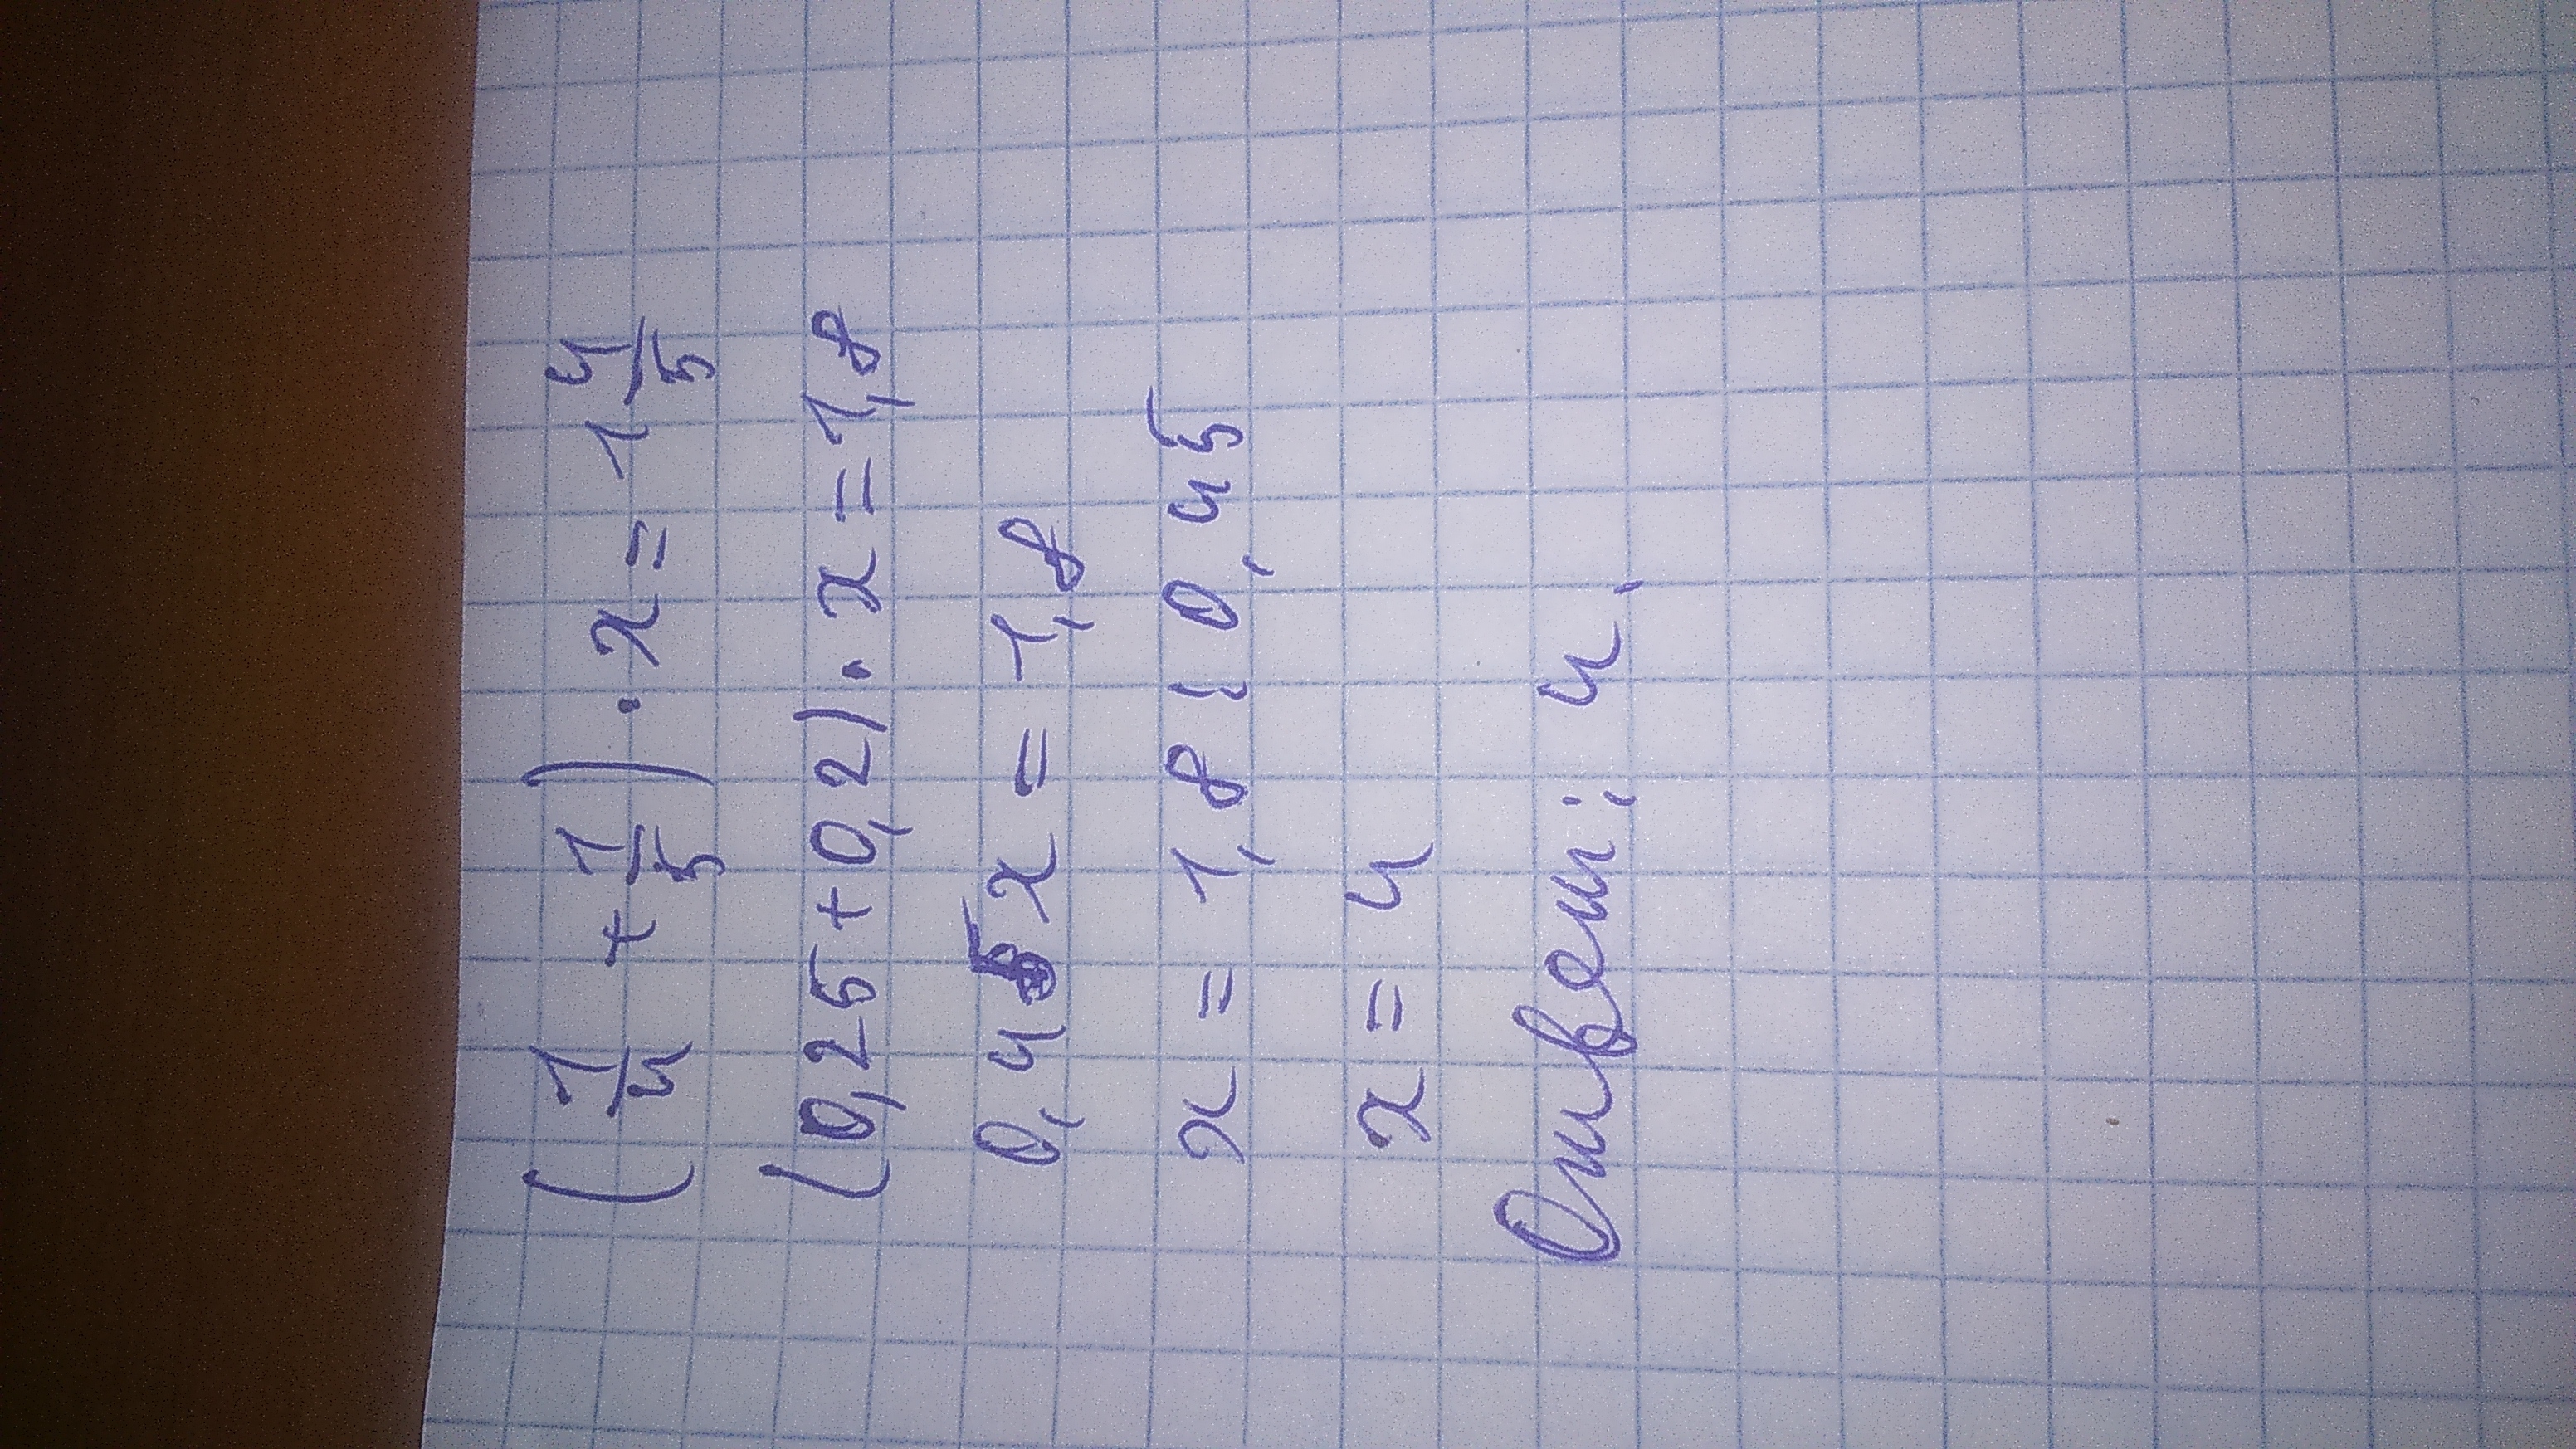 (1/4 + 1/5) · x = 1 4/5
(0,25+0,2) · x = 1,8
0,45x = 1,8
x = 1,8 : 0,45
x = 4
Ответ: 4.